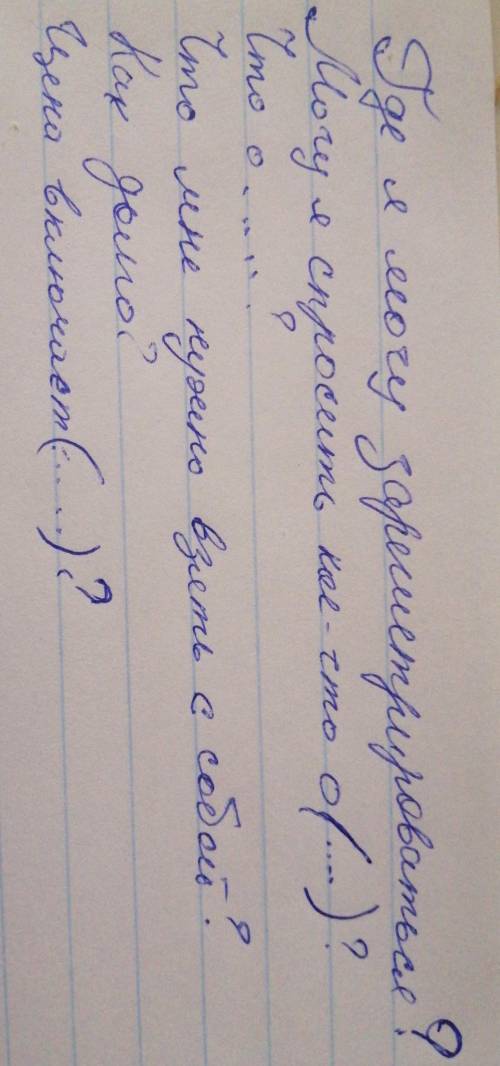 Где я могу зарегистрироваться?
Могу я спросить кое-что о (....)?
Что о.....?
Что мне нужно взять с собой?
Как долго?
Цена включает (.....)?